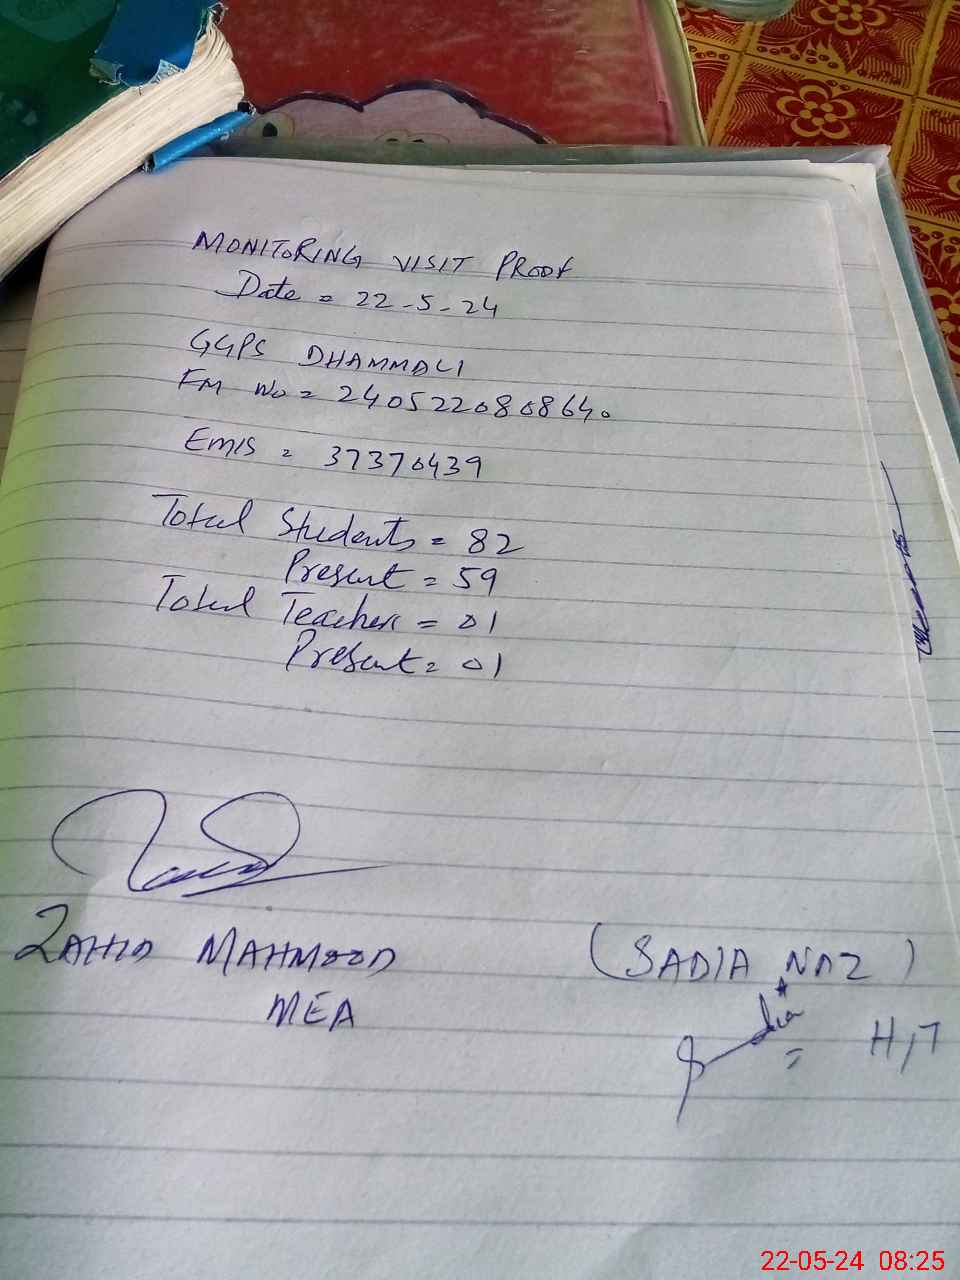 MONITORING VISIT PROOF
Date = 22-5-24
GGPS DHAMMALI
FM No = 2405220808640
EMIS = 37370439
Total Students = 82
Present = 59
Total Teachers = 01
Present = 01
ZAHID MAHMOOD
MEA
(SADIA NAZ)
Sadia
H,T
22-05-24 08:25